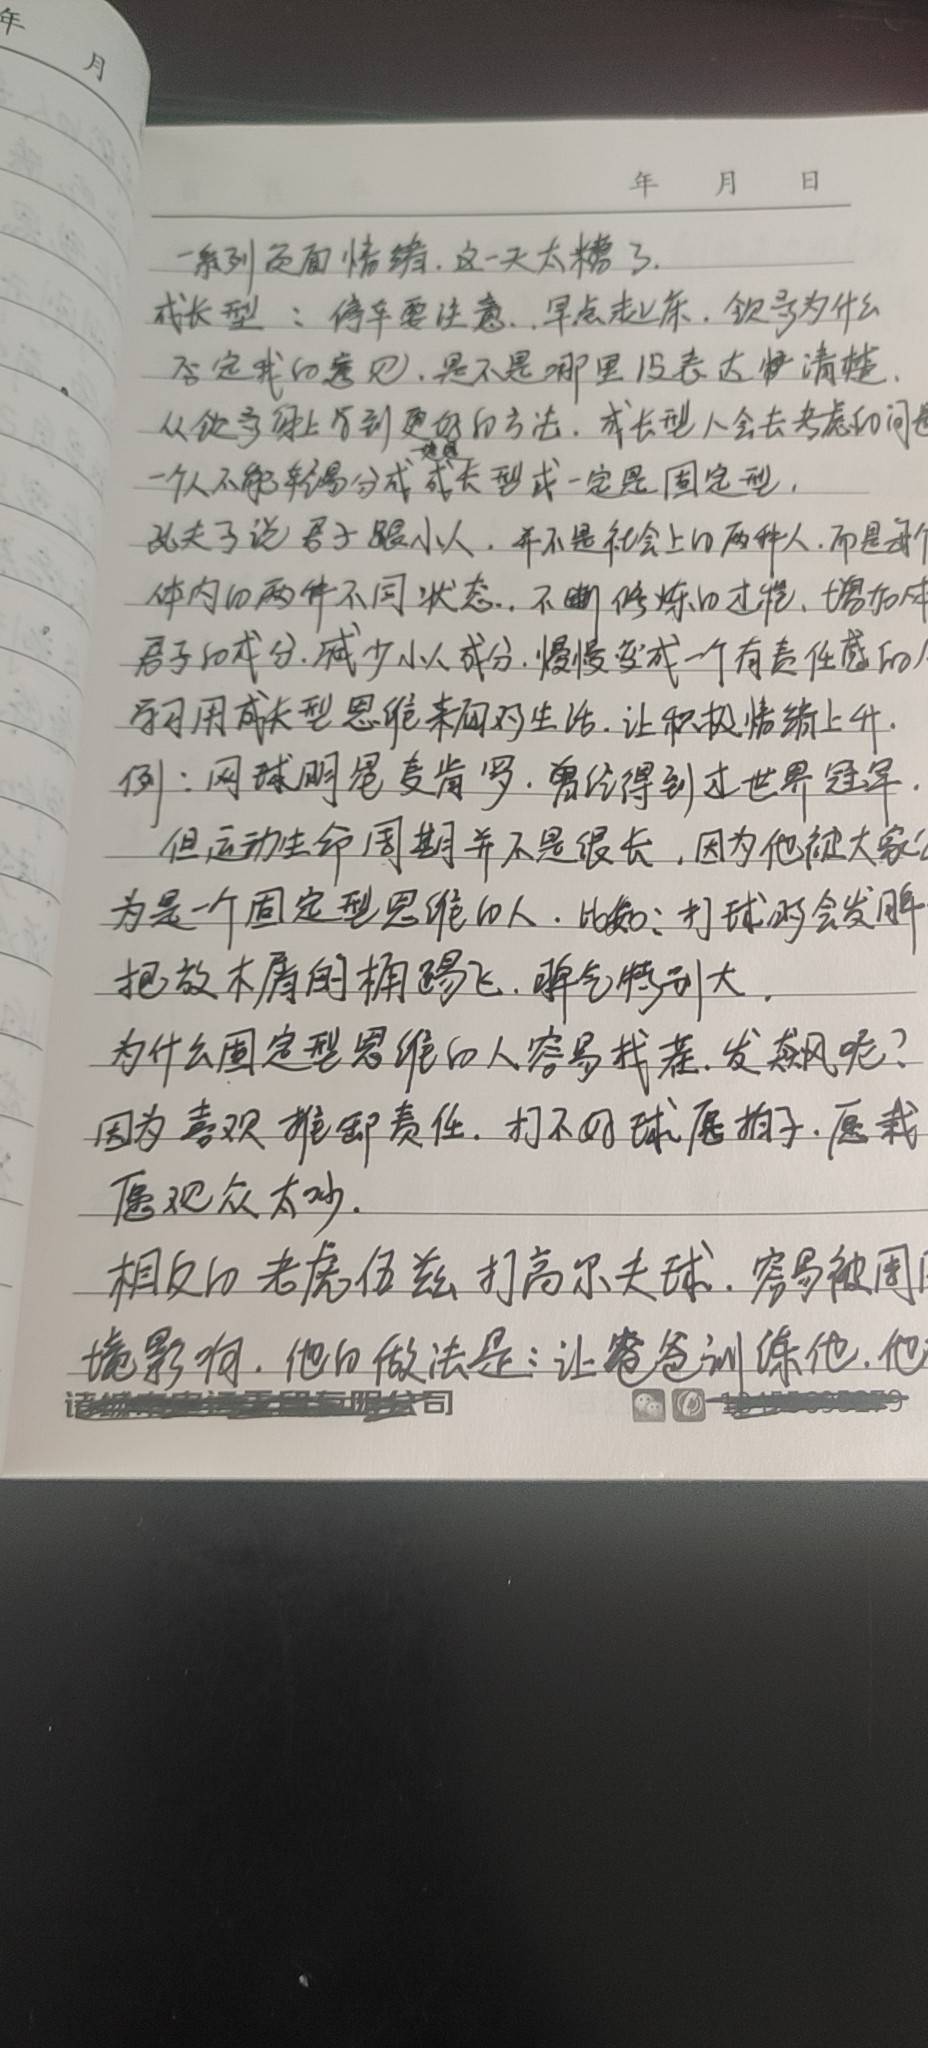 年
月
年 月 日
一系列负面情绪.这一天太糟了.
成长型：停车要注意.早点起床.领导为什么
否定我的意见.是不是哪里没表达清楚.
从领导身上学到更好的方法.成长型人会去考虑的问题
一个人不能轻易分成 成长型或一定是固定型.
孔夫子说君子跟小人.并不是社会上的两种人.而是每个
体内的两件不同状态..不断修炼的过程、增加体
君子的成分.减少小人成分.慢慢变成一个有责任感的人
学习用成长型思维来面对生活.让积极情绪上升.
例：网球明星麦肯罗.曾经得到过世界冠军.
但运动生命周期并不是很长,因为他被大家认
为是一个固定型思维的人.比如：打球时会发脾
把放木屑的桶踢飞.脾气特别大.
为什么固定型思维的人容易找茬.发飙呢?
因为喜欢推卸责任.打不好球愿拍子.愿裁
愿观众太吵.
相反的老虎伍兹打高尔夫球.容易被周围
境影响.他的做法是：让爸爸训练他.他
诸城 有限公司